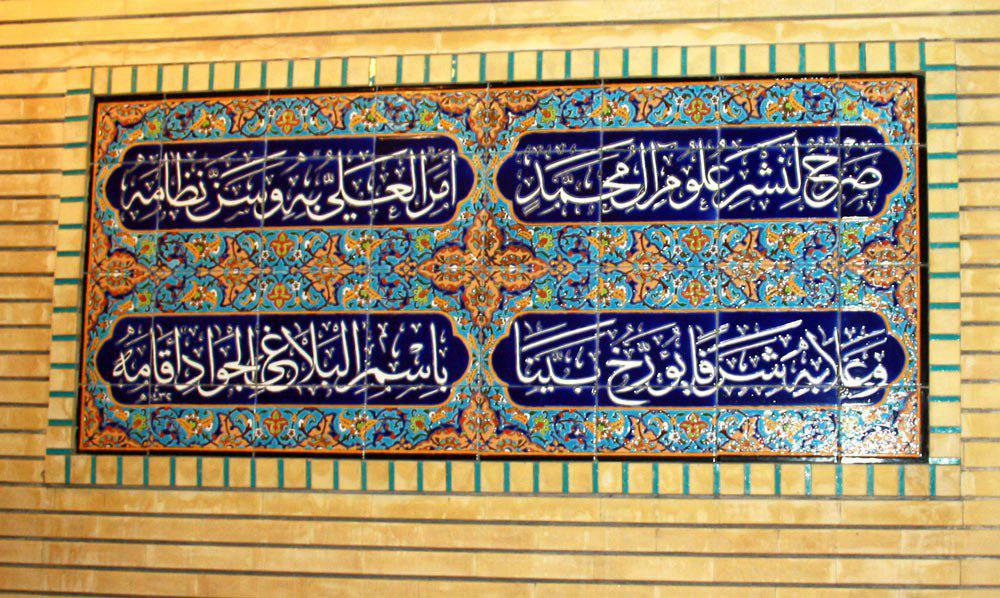 صَرْحٌ لِنَشْرِ عُلُومِ آلِ مُحَمَّدٍ
أَمَرَ العَلِيُّ بِهِ وَسَنَّ نِظَامَهُ
وَعَلَا بِهِ شَرَفًا يُؤَرِّخُ بَيِّنًا
بِاسْمِ البَلَاغِي الجَوَادِ أَقَامَهُ
١٤٣٢هـ